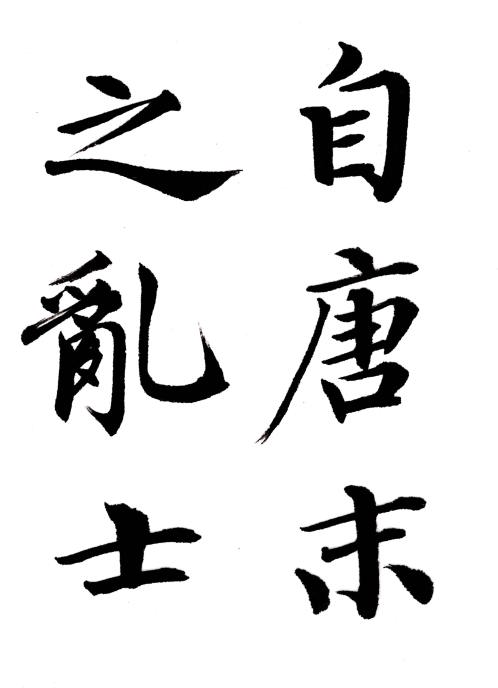 自唐末
之亂士